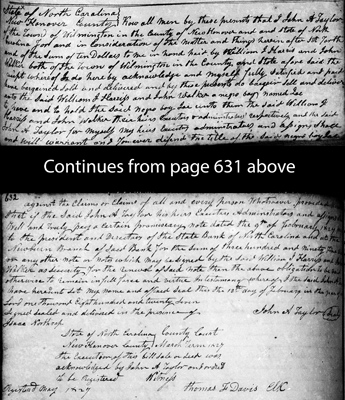 State of North Carolina
New Hanover County } Know all men by these presents that I John A Taylor
of the Town of Wilmington in the County of New Hanover and State of North
Carolina for and in Consideration of the Matter and things herein after set forth
and of the sum of ten Dollars to me in hand paid by William J Harris and John
Walker both of the Town of Wilmington in the County and State afore said the
receipt whereof I do here by acknowledge and myself fully satisfied and paid
have bargained sold and delivered and by these presents do bargain sell and deliver
unto the said William J Harris and John Walker a negro boy named Joe
To have and to hold the said negro boy Joe unto them the said William J
Harris and John Walker their heirs Executors & administrators respectively and the said
John A Taylor for myself my heirs Executors administrators and assigns shall
and will warrant and forever defend the title of the said negro boy Joe
Continues from page 631 above
632
against the Claims or Claims of all and every person Whatsoever provided
that if the said John A Taylor his heirs Executors Administrators and assigns
Well and truly pay a certain promissory note dated the 9th of February
to the president and Directors of the State Bank of North Carolina and at the
Newbern Branch of said Bank for the sum of three hundred and Ninety
or any other note or notes which may be signed by the said William J Harris and
Walker as security for the renewal of said note then the above obligation to be void
otherwise to remain in full force and virtue In testimony whereof I the said John A
have hereunto set my name and affixed seal this the 12th day of February in the year
Lord one thousand Eight hundred and twenty Seven
signed sealed and delivered in the presence of
John A Taylor (Seal)
Isaac Northrop
State of North Carolina } County Court
New Hanover County } March Term 1827
the Execution of this bill Sale or deed was
acknowledged by John A Taylor and ordered
to be Registered
Witness
Registered May 1827
Thomas F Davis Clk